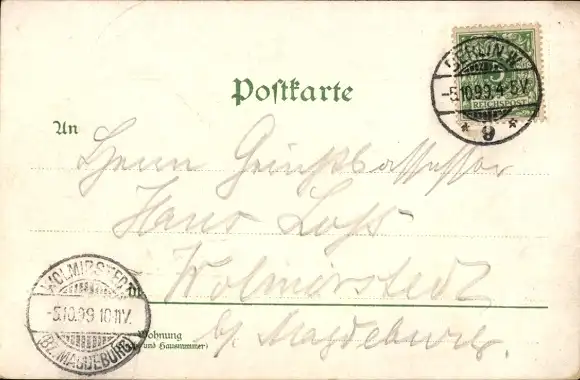 BERLIN W.
-5.10.99.4-5V.
* 9 *
5
REICHSPOST
Postkarte
An
Herrn Gerichtsassessor
Hans
Wolmirstedt
WOLMIRSTEDT
-5.10.99.10.11V.
(BZ. MAGDEBURG)
Wohnung
und Hausnummer)
b/ Magdeburg.